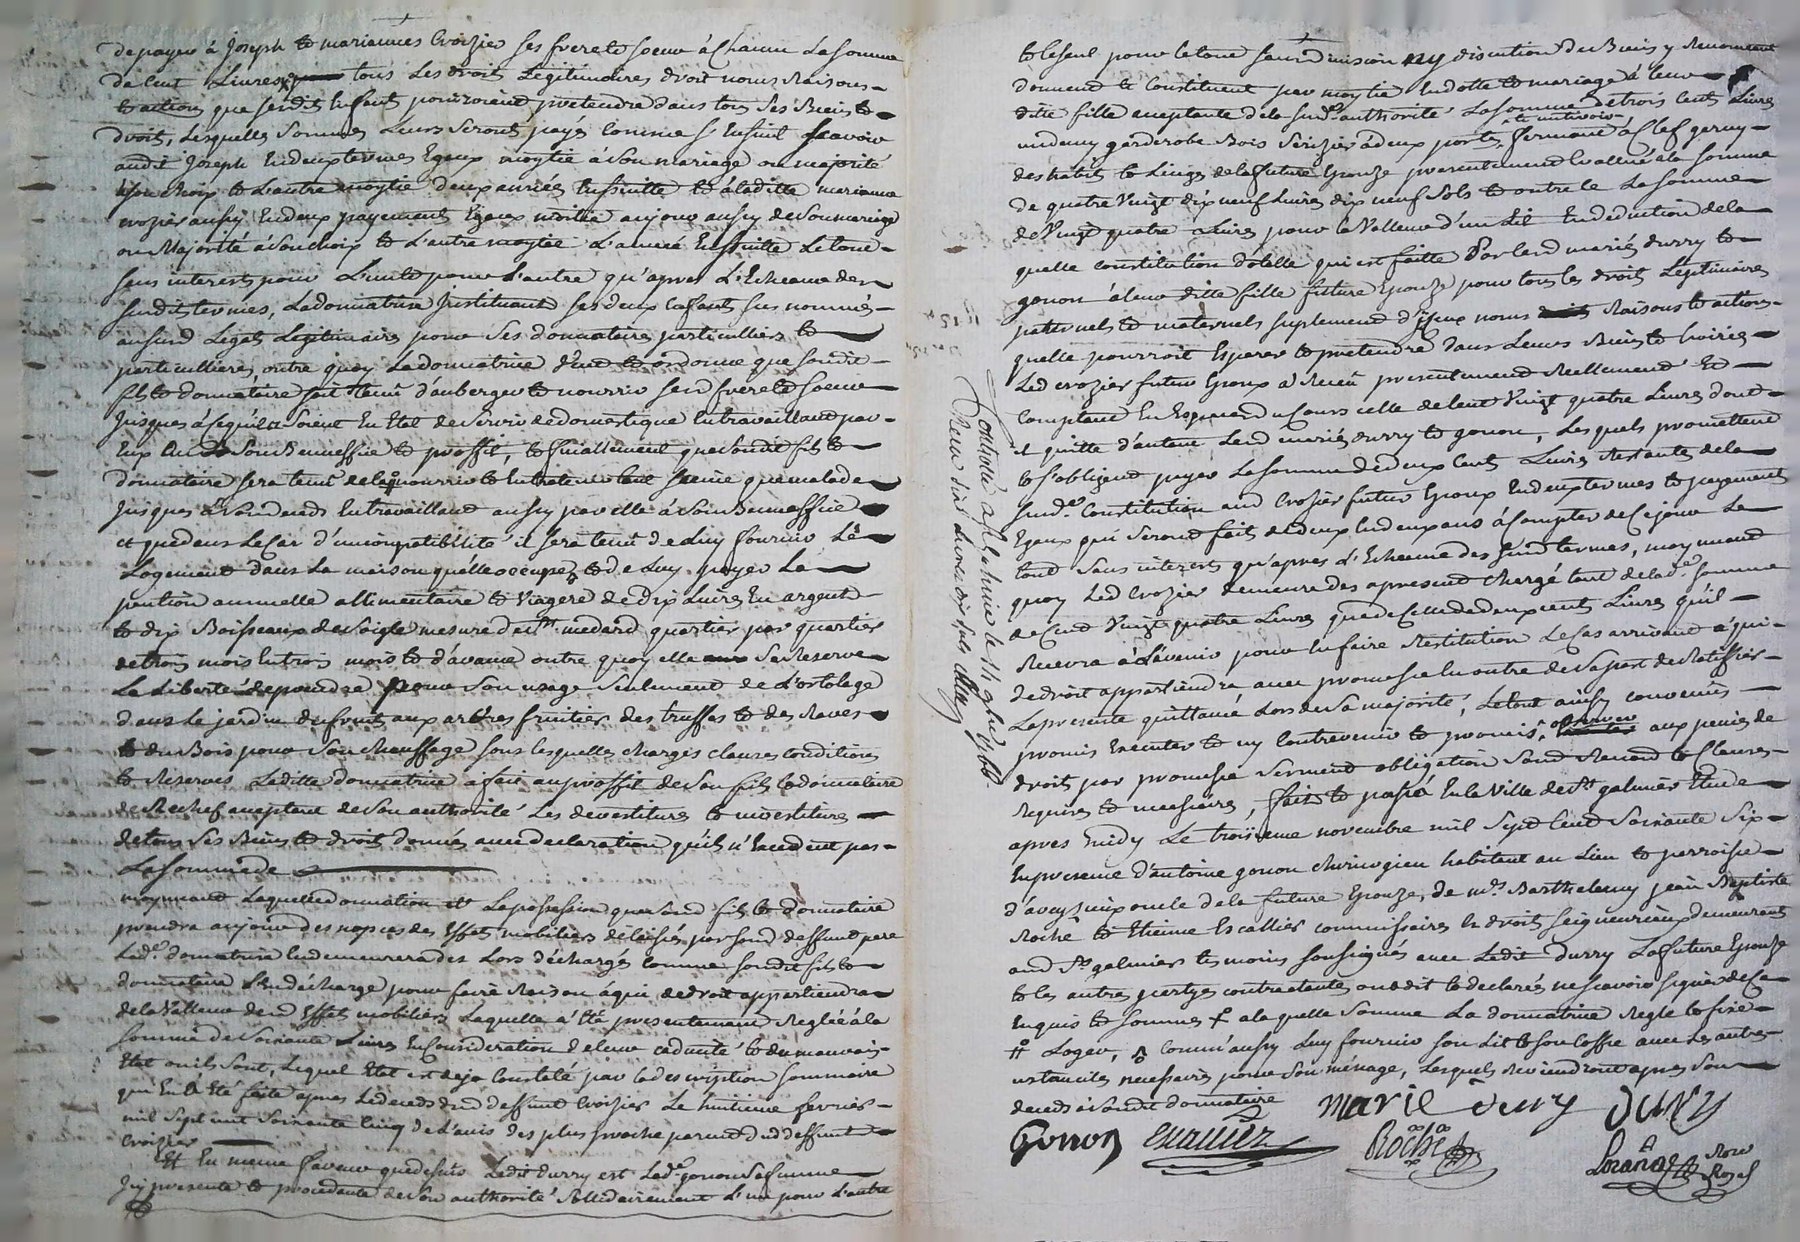 de payer à Joseph et mariannes Croizier ses frere et soeur à Chacun La somme
de Cent Livres tous Les droits Legitimaires droit noms Raisons
et actions que sesdits Enfants pouroient pretendre dans tous ses Biens et
droit, Lesquelles Sommes Leurs Seront payés Comme s'Ensuit Scavoir
audit Joseph En deux termes Egeaux moytié à Son mariage ou majorité
à son choix et L'autre moytié deux années Ensuitte et à laditte marianne
crozier aussy En deux payements Egeaux moitié au jour aussy de Son mariage
ou Majorité à Son choix et L'autre moytié L'année Ensuitte Le tout
sans interests pour L'un et pour L'autre qu'apres L'Echeance des
susdits termes, La donnatrice Instituant ses deux Enfants sus nommés
ausurd Legats Legitimaires pour Ses donnataires particulliers et
particullieres, outre quoy La donnatrice Veut et ordonne que sondit
fils et donnataire soit tenû d'auberger et nourrir sesd frere et Soeur
Jusques à Ce qu'ils Soient En Etat de Servir de domestique En travaillant par
Eux à Son Benneffice et proffit, et finallement que sondit fils et
donnataire sera tenû de la nourrir et Entretenir tant Saine que malade
Jusques à Son deceds En travaillant aussy par elle à Son Benneffice
et que dans Le Cas d'incompatibilité il sera tenû de Luy fournir Le
Logement dans La maison qu'elle occupe, et de Luy payer La
pention annuelle allimentaire et Viagere de dix Livres En argent
et dix Boisseaux de Soigle mesure de st medard quartier par quartier
de trois mois En trois mois et d'avance outre quoy elle Se Reserve
La Liberté de prendre pour Son usage Seulement de L'ortolage
dans Le jardin du fruit aux arbres fruitier des truffes et des Raves
et du Bois pour Son chauffage sous lesquelles charges clauses Conditions
et Reserves Laditte donnatrice a fait au proffit de Son fils et donnataire
de Rechef acceptant de Son authorité Les devestitures et investitures
de tous Ses Biens et droit donnés avec declaration qu'ils n'Excedent pas
La somme de
moyennant Laquelle donnation et La possession que sond fils et donnataire
prendra au jour des nopces des Effets mobiliers delaissés par sond deffunt pere
Lade donnatrice En demeurera des Lors déchargée Comme sondit fils et
donnataire L'en décharge pour faire Raison à qui de droit appartiendra
de la Valleur desd Effets mobiliers Laquelle a Eté presentement Reglée à la
somme de Soixante Livres En Consideration de leur caducité et du mauvais
Etat ou ils Sont, Lequel Etat est deja Constaté par La description sommaire
qui En a Eté faite apres Le deceds dud deffunt Croizier Le huitieme fevrier
mil Sept cent Soixante Cinq de L'avis des plus proche parents dud deffunt
Croizier
Et En meme faveur que dessus Ledit durry et Lade gonon Sa femme
Icy presente et procedante de Son authorité Sollidairement L'un pour L'autre
et Le Seul pour Le tout sans division ny discution de Biens y Renonceant
donnent et Constituent par moytié En dotte et mariage à leur
ditte fille acceptante de la susde authorité La somme de trois Cents Livres
un demy garderobe Bois Serizier à deux portes fermant à Clef garny
des habits et Linges de la future Epouze presentement Evallué à la Somme
de quatre Vingt dix neuf Livres dix neuf Sols et outre ce La somme
de Vingt quatre Livres pour la Valleur d'un Lit En deduction de la
quelle constitution dotalle qui est faitte Par Lesd mariés durry et
gonon à leur ditte fille future Epouze pour tous les droit Legitimaires
paternels et maternels suplement d'iceux noms Raisons et actions
quelle pourroit Esperer et pretendre dans Leurs Biens et hoiries
Led crozier futur Epoux a Receu presentement Reellement Et
Comptant En Especes au Cours celle de Cent Vingt quatre Livres dont
il quitte d'autant Lesd mariés durry et gonon, Lesquels promettent
et s'obligent payer La somme de deux Cents Livres Restantes de la
susde Constitution aud Crozier futur Epoux En deux termes et payements
Egeaux qui Seront fait de deux En deux ans à Compter de Ce jour Le
tout sans interests qu'apres L'Echeance des susd termes, moyennant
quoy Led Crozier demeure des apresent chargé tant de lade somme
de Cent Vingt quatre Livres que de Celle de deux cents Livres qu'il
Recevra à L'avenir pour En faire Restitution Le Cas arrivant à qui
de droit appartiendra avec promesse En outre de Sa part de Ratiffier
La presente quittance Lors de Sa majorité, Le tout ainsy convenus
promis Executer et ny Contrevenir et promis observer aux peines de
droit par promesse Serment obligation Soud Renond et Clauses
Requises et necessaires, fait et passé En la Ville de st galmier Etude
apres midy Le troizieme novembre mil Sept Cent Soixante Six
En presence d'antoine gonon chirurgien habitant au Lieu et parroisse
d'aveyzieux oncle de la future Epouze, de mre Barthelemy jean Baptiste
Roche et Etienne Escallier commissaires En droit seigneuriaux demeurants
aud st galmier temoins soussignés avec Ledit Durry La future Epouze
et les autres partyes contractantes ont dit et declarés ne scavoir signer de Ce
Enquis et sommés a laquelle Somme La donnatrice Regle et fixe
Loger, comm'aussy Luy fournir son Lit et son Coffre avec Les autres
ustanciles necessaires pour Son ménage, Lesquels Reviendront apres Son
deceds à Sondit donnataire
marie Dury Dury
Gonon Escallier Roche
Controllé à St galmier le 14 9bre 1766